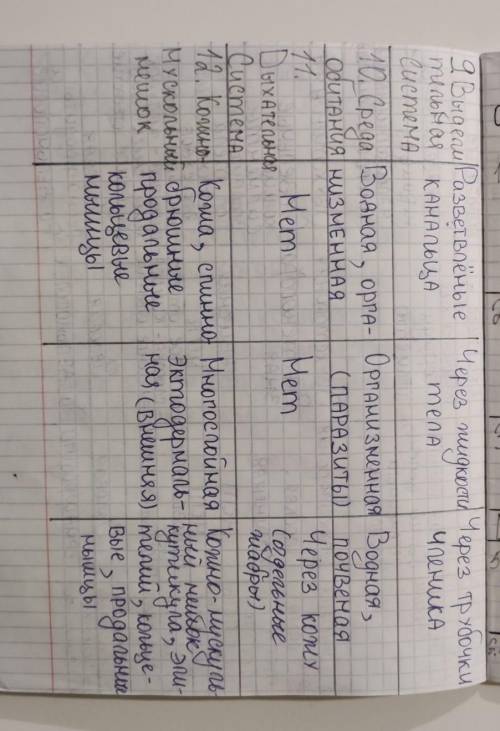 9. Выдели
тильная
система
Разветвлёные
канальца
Через жидкости
тела
Через трубочки
членика
10. Среда
обитания
Водная, орга-
низменная
Организменная
(паразиты)
Водная,
почвеная
11.
Дыхательная
система
Нет
Нет
Через кожу
(отдельные
жабры)
12. Кожно
Мускольный
мешок
Кожа, спинно
брюшные
продальные
кольцевые
мышцы
Многослойная
Эктодермаль-
ная (внешняя)
Кожно-мускуль
ный мешок
кутикула, эпи-
телий, кольце-
вые, продальные
мышцы